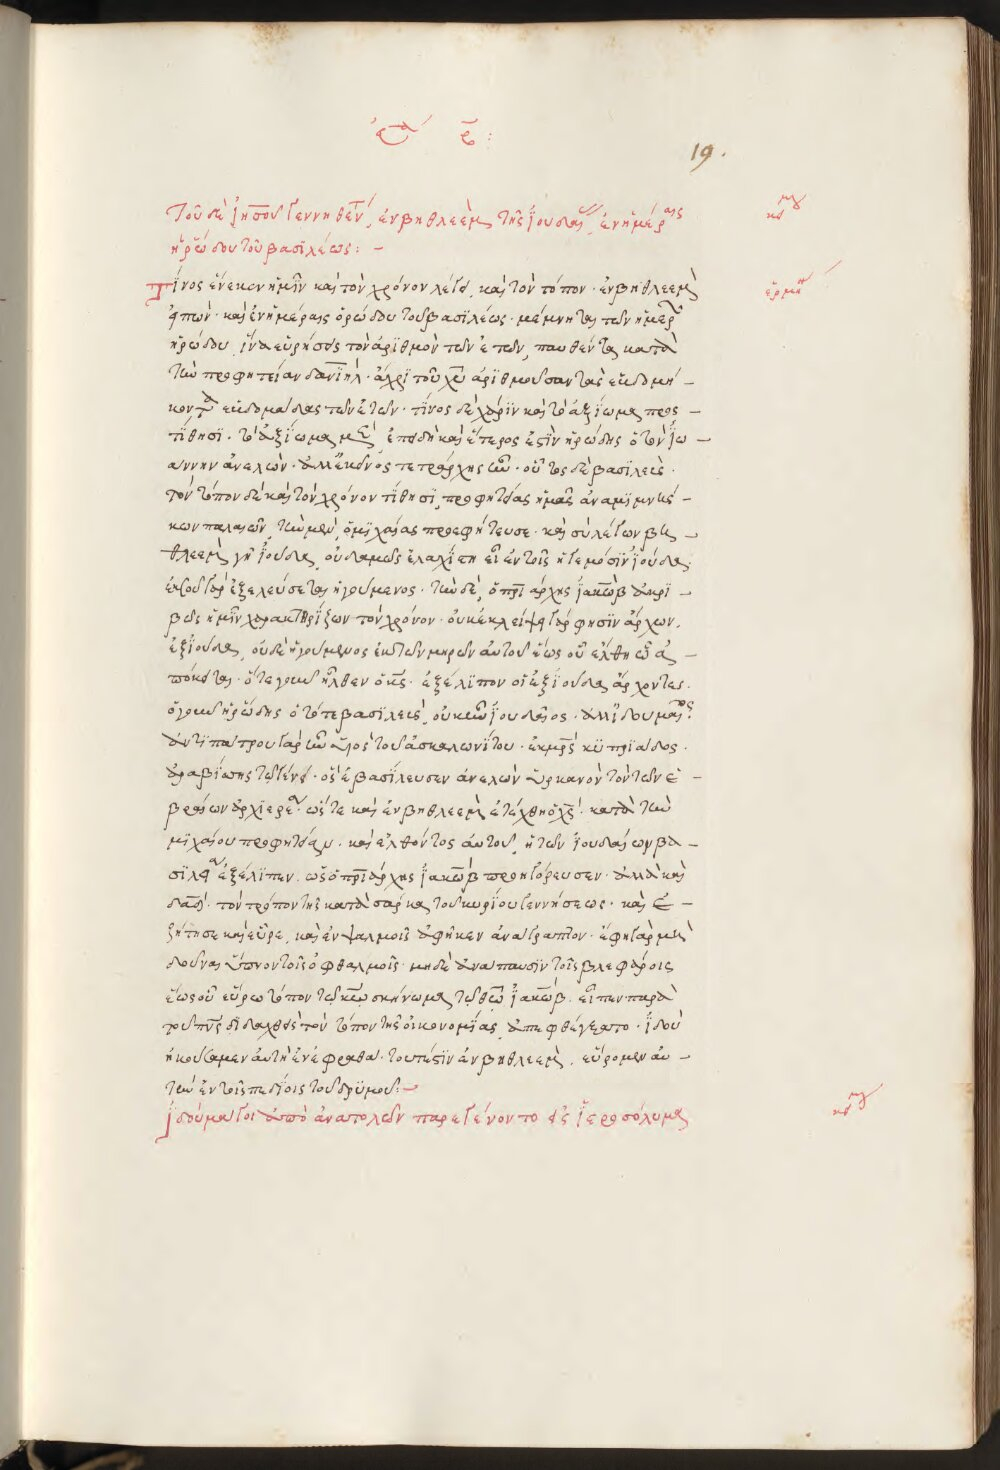 19.
Τοῦ δὲ ἰησοῦ γεννηθέντ, ἐν βηθλεὲμ τῆς ἰουδαίας, ἐν ἡμέραις
ἡρώδου τοῦ βασιλέως: –
Τίνος ἕνεκεν ἡμῖν καὶ τὸν χρόνον λέγει, καὶ τὸν τόπον· ἐν βηθλεὲμ
εἰπών· καὶ ἐν ἡμέραις ἡρώδου τοῦ βασιλέως· μέμνηται τῶν ἡμερῶν
ἡρώδου, ἵνα εὑρήσεις τὸν ἀριθμὸν τῶν ἐτῶν, παυθέντας κατὰ
τὴν προφητείαν δανιὴλ· ἀχρὶ τοῦ χυ ἀριθμούσαν τὰς εὐδομή –
κοντα εὐδομάδας τῶν ἐτῶν· τίνος δὲ χάριν καὶ τὸ ἀξίωμα προς –
τίθησι· τὸ ἀξίωμα ἐπειδὴ καὶ ἕτερος ἐστὶν ἡρώδης ὁ τὸν ἰω –
άννην ἀνελών· ἀλλ' ἐκεῖνος τετράρχης ὢν· οὗτος δὲ βασιλεὺς·
τὸν τόπον δὲ καὶ τὸν χρόνον τίθησι, προφητείας ἡμᾶς ἀναμιμνήσ –
κων παλαιῶν, τὴν μὲν, ὁ μιχαίας προεφήτευσε· καὶ σὺ λέγων βη –
θλεὲμ γῆ ἰούδα, οὐδαμῶς ἐλαχίστη εἶ ἐν τοῖς ἡγεμόσιν ἰούδα·
ἐκ σοῦ γὰρ ἐξελεύσεται ἡγούμενος· τὴν δὲ, ὁ πριάρχης ἰακὼβ ἀκρι –
βῶς ἡμῖν χαρακτηρίζων τὸν χρόνον· οὐκ ἐκλείψει γάρ φησιν ἄρχων,
ἐξ ἰούδα, οὐδὲ ἡγούμενος ἐκ τῶν μηρῶν αὐτοῦ ἕως οὗ ἔλθη ὧ ἀ –
πόκειται· ὅτε γοῦν ἦλθεν ὁ κς· ἐξέλιπον οἱ ἐξ ἰούδα ἄρχοντες·
ὁ γοῦν ἡρώδης ὁ τότε βασιλεὺς, οὐκ ἦν ἰουδαῖος· ἀλλ' ἰδουμαῖος·
ἀντιπάτρου γὰρ ἦν υἱὸς τοῦ ἀσκαλωνίτου· ἐκ μρς κυπρίαδος·
ἀραβίσης τῷ γένει· ὃς ἐβασίλευσεν ἀνελὼν ὑρκανὸν τὸν τῶν ἑ –
βραίων ἀρχιερέα· ὥστε καὶ ἐν βηθλεὲμ ἐτέχθη ὁ χς· κατὰ τὴν
μιχαίου προφητείαν· καὶ ἐλθόντος αὐτοῦ, ἡ τῶν ἰουδαίων βα –
σιλεία ἐξέλιπεν· ὡς ὁ πριάρχης ἰακὼβ προηγόρευσεν· ἀλλὰ καὶ
δαδ· τὸν τρόπον τῆς κατὰ σάρκα τοῦ κυρίου γεννήσεως· καὶ ἐ –
ζήτησε καὶ εὗρε, καὶ ἐν ψαλμοῖς ἀφῆκεν ἀνάγραπτον· ἔφη γὰρ μὴ
δοῦναι ὕπνον τοῖς ὀφθαλμοῖς· μηδὲ ἀνάπαυσιν τοῖς βλεφάροις
ἕως οὗ εὕρω τόπον τῷ κω σκήνωμα τῷ θω ἰακὼβ· εἶπεν παρὰ
τοῦ πνς διδαχθεὶς τὸν τόπον τῆς οἰκονομίας, ἀπεφθέγξατο· ἰδοὺ
ἠκούσαμεν αὐτὴν ἐν ἐφραθα· τουτέστιν ἐν βηθλεὲμ, εὕρομεν αὐ –
τὴν ἐν τοῖς πεδίοις τοῦ δρυμοῦ: –
ἰδοὺ μάγοι ἀπὸ ἀνατολῶν παρεγένοντο εἰς ἱεροσόλυμα